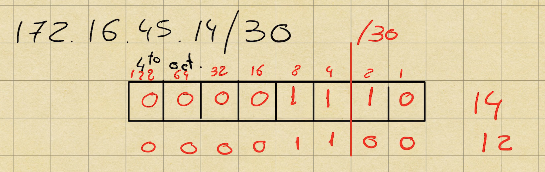 172.16.45.14/30 /30
4to oct.
128 64 32 16 8 4 2 1
0 0 0 0 1 1 1 0 14
0 0 0 0 1 1 0 0 12